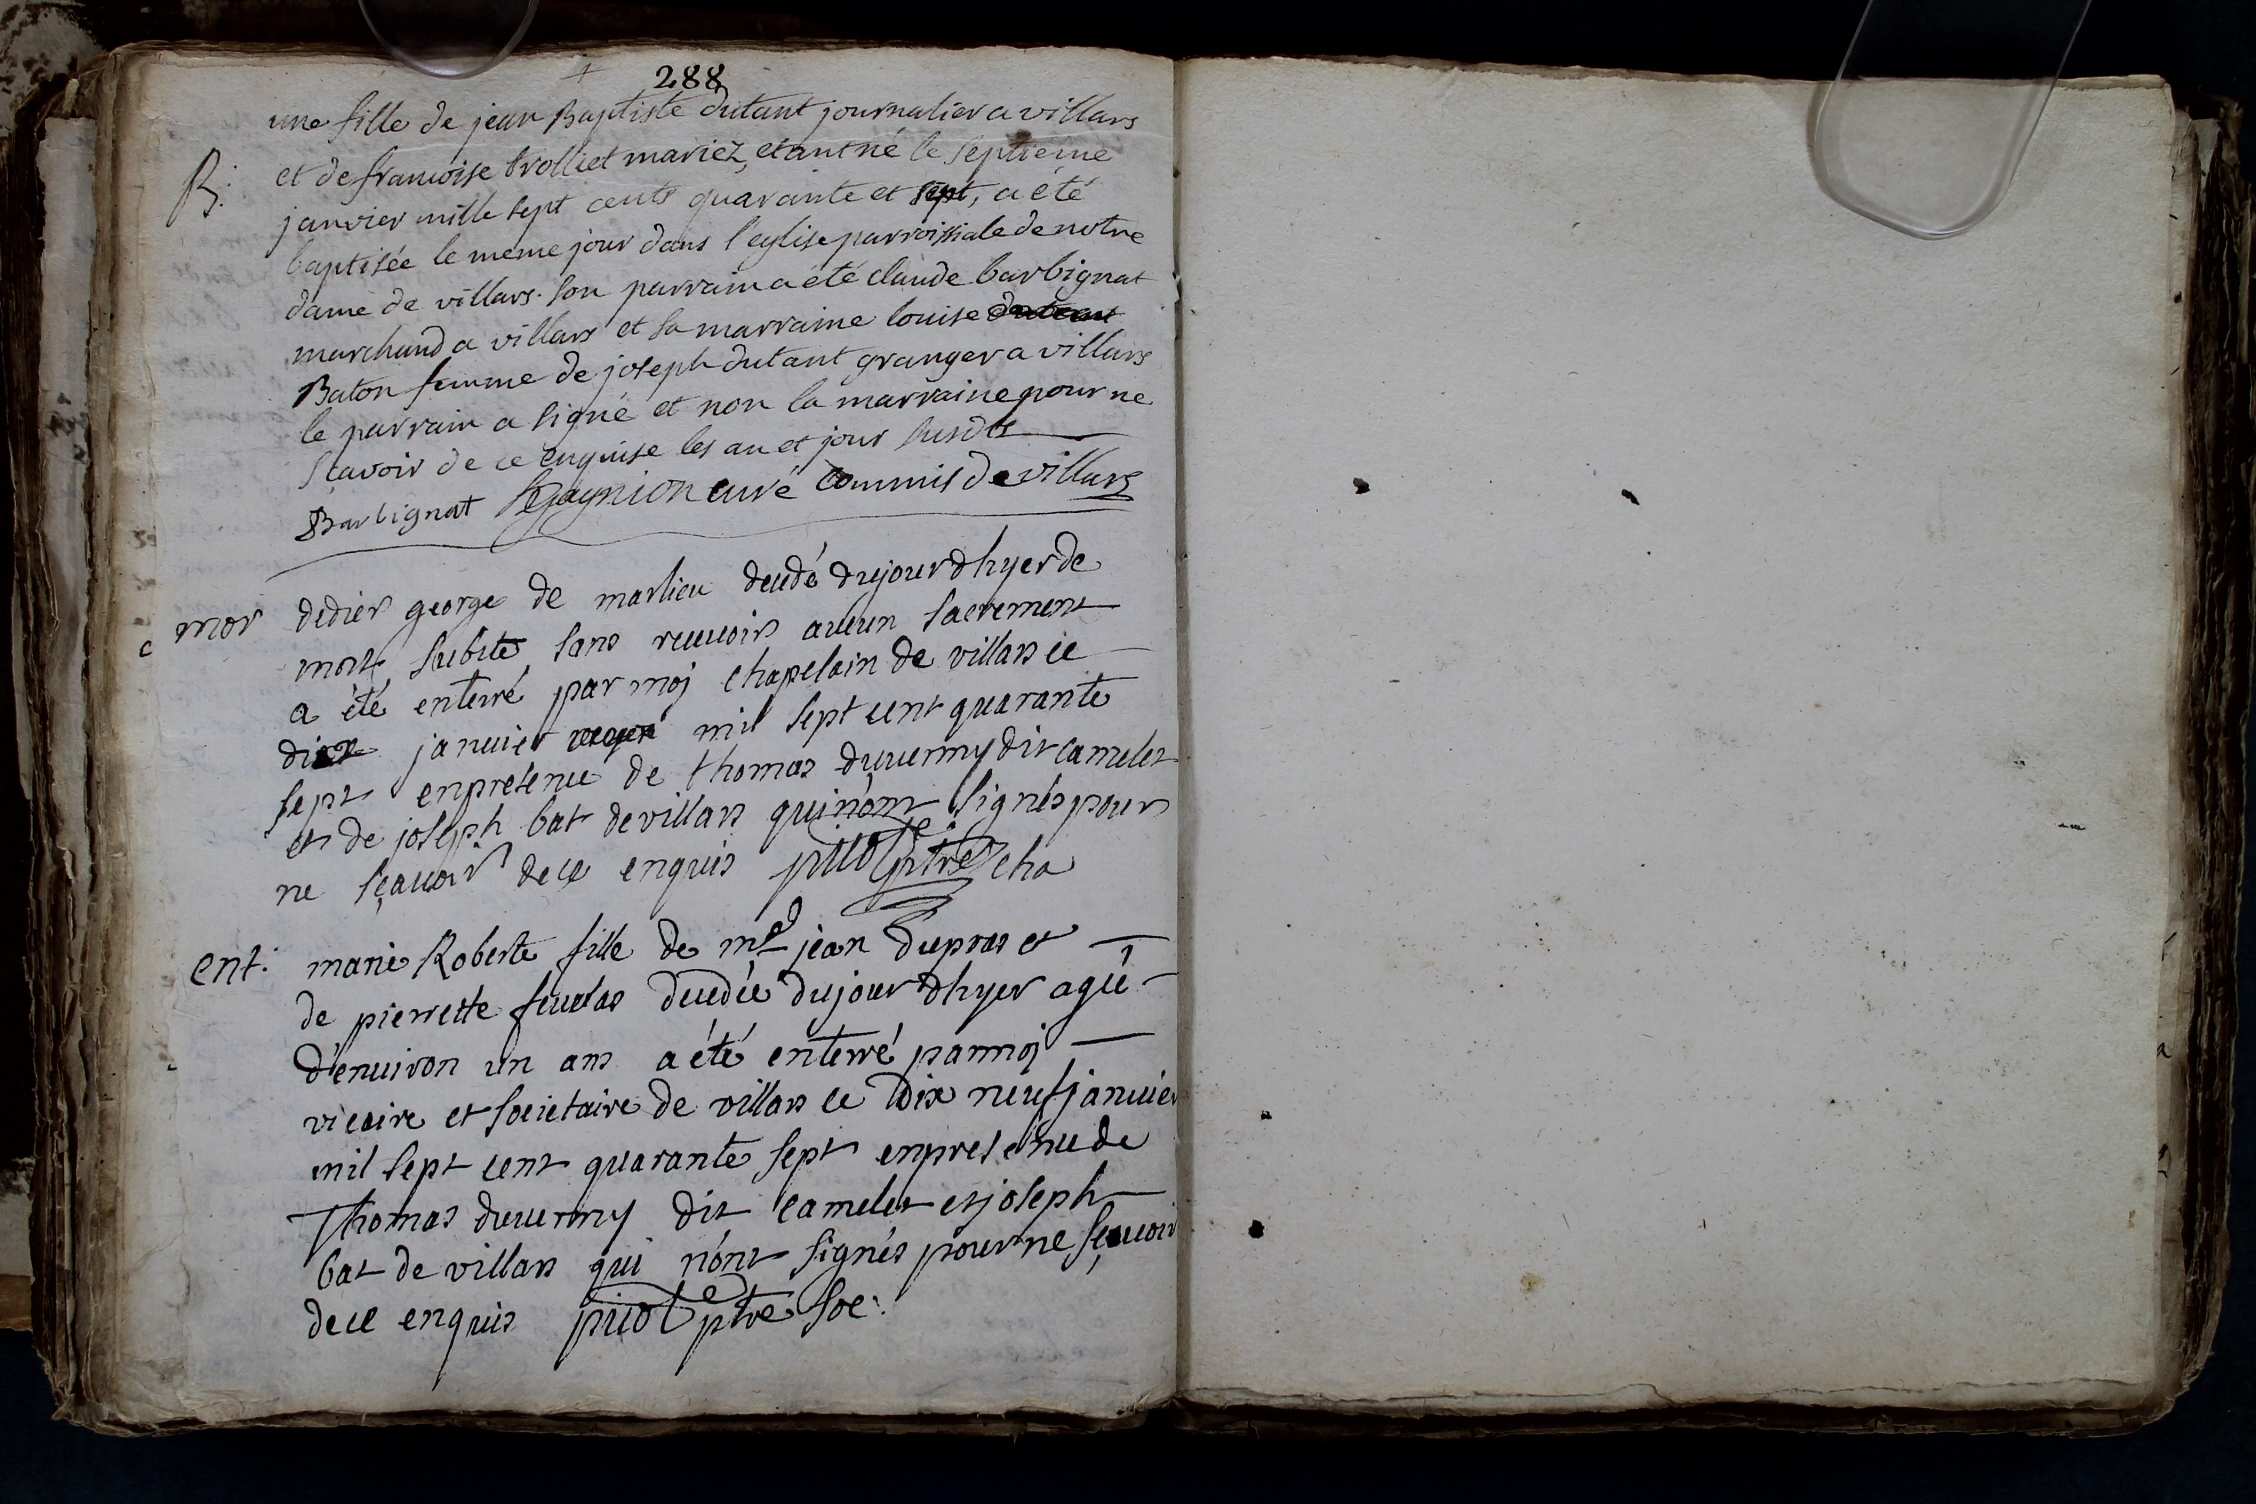 288
une fille de jean Baptiste dutant journalier a villars
B: et de francoise brolliet mariez, etant né le septieme
janvier mille sept cents quarante et sept, a été
baptisée le meme jour dans l'eglise parroissiale de notre
dame de villars. son parrain a été claude barbignat
marchand a villars et sa marraine louise
Baton femme de joseph dutant granger a villars
le parrain a signé et non la marraine pour ne
scavoir de ce enquise les an et jour susdts
Barbignat Gagnion curé commis de villars
mor didier george de marlieu decedé dujourdhyer de
mort subite sans recevoir aucun sacrement
a été enterré par moj chapelain de villars ce
dix janvier mil sept cent quarante
sept enpresence de thomas duvermy dit camelet
et de joseph bat de villars quinont signés pour
ne sçavoir de ce enquis picolet ptre cha
ent: marie Roberte fille de md jean dupras et
de pierrette decedée dujourdhyer agée
d'environ un ans a été enterré parmoj
vicaire et societaire de villars ce dix neuf janvier
mil sept cent quarante sept enpresence de
Thomas duvermy dit camelet et joseph
bat de villars qui nont signés pour ne sçavoir
de ce enquis picolet ptre soc: